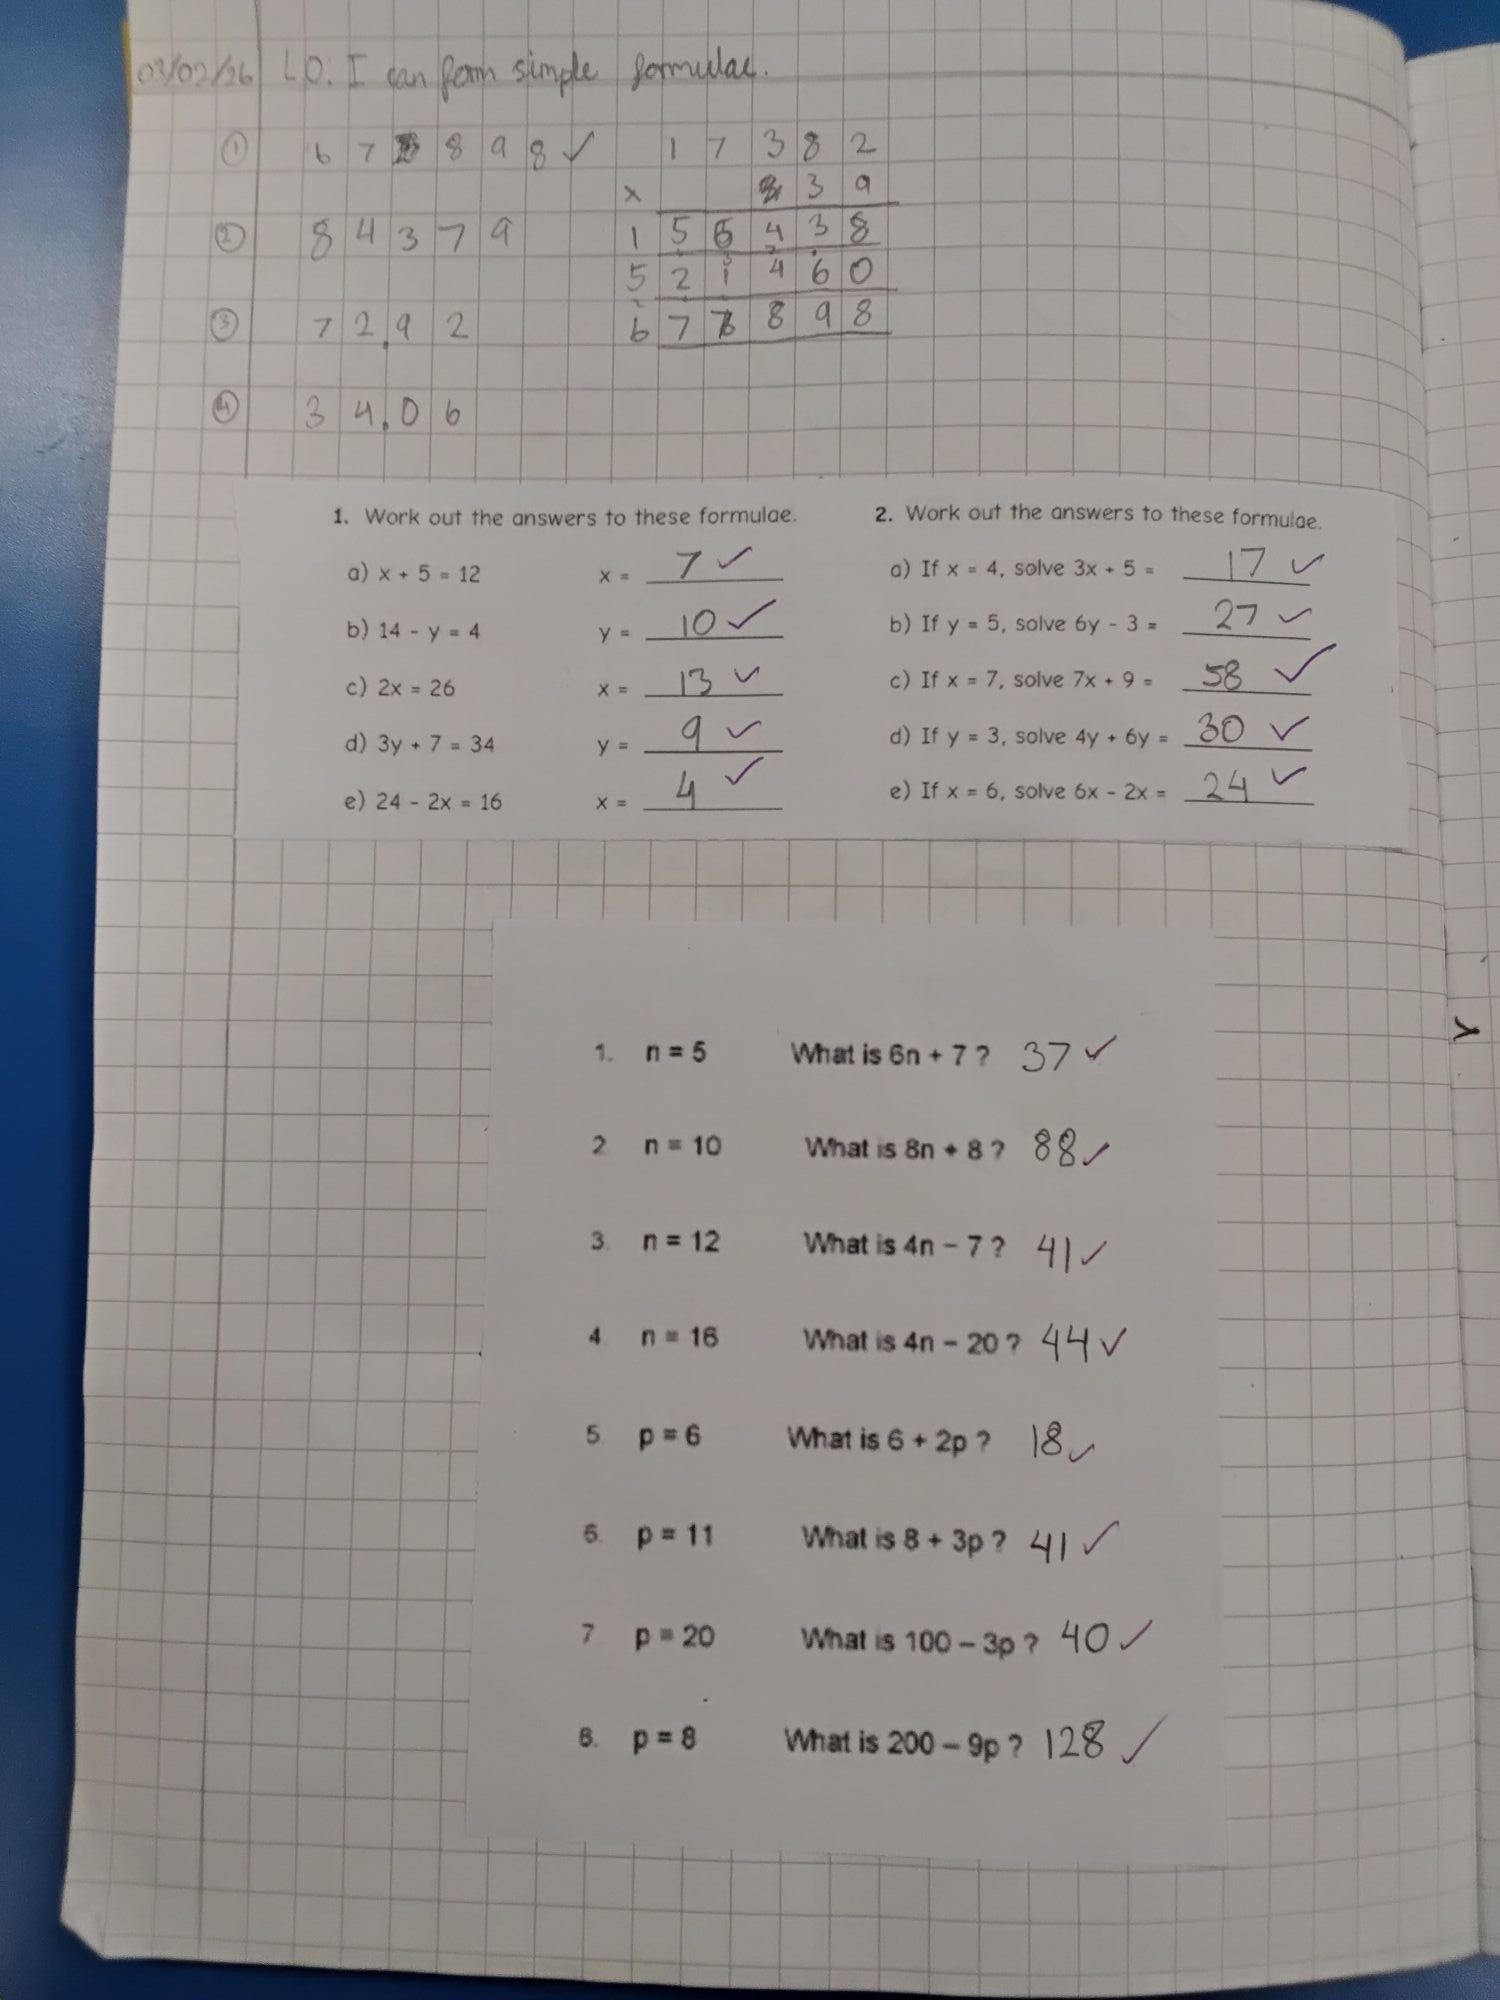 03/02/26 LO. I can form simple formulae.
① 67 8898 ✓
17382
× 39
② 84379
156438
521460
③ 72.92
677898
④ 34.06
1. Work out the answers to these formulae.
a) x + 5 = 12 x = 7 ✓
b) 14 - y = 4 y = 10 ✓
c) 2x = 26 x = 13 ✓
d) 3y + 7 = 34 y = 9 ✓
e) 24 - 2x = 16 x = 4 ✓
2. Work out the answers to these formulae.
a) If x = 4, solve 3x + 5 = 17 ✓
b) If y = 5, solve 6y - 3 = 27 ✓
c) If x = 7, solve 7x + 9 = 58 ✓
d) If y = 3, solve 4y + 6y = 30 ✓
e) If x = 6, solve 6x - 2x = 24 ✓
1. n = 5 What is 6n + 7 ? 37 ✓
2 n = 10 What is 8n + 8 ? 88 ✓
3. n = 12 What is 4n – 7 ? 41 ✓
4. n = 16 What is 4n – 20 ? 44 ✓
5. p = 6 What is 6 + 2p ? 18 ✓
6. p = 11 What is 8 + 3p ? 41 ✓
7 p = 20 What is 100 – 3p ? 40 ✓
8. p = 8 What is 200 – 9p ? 128 ✓